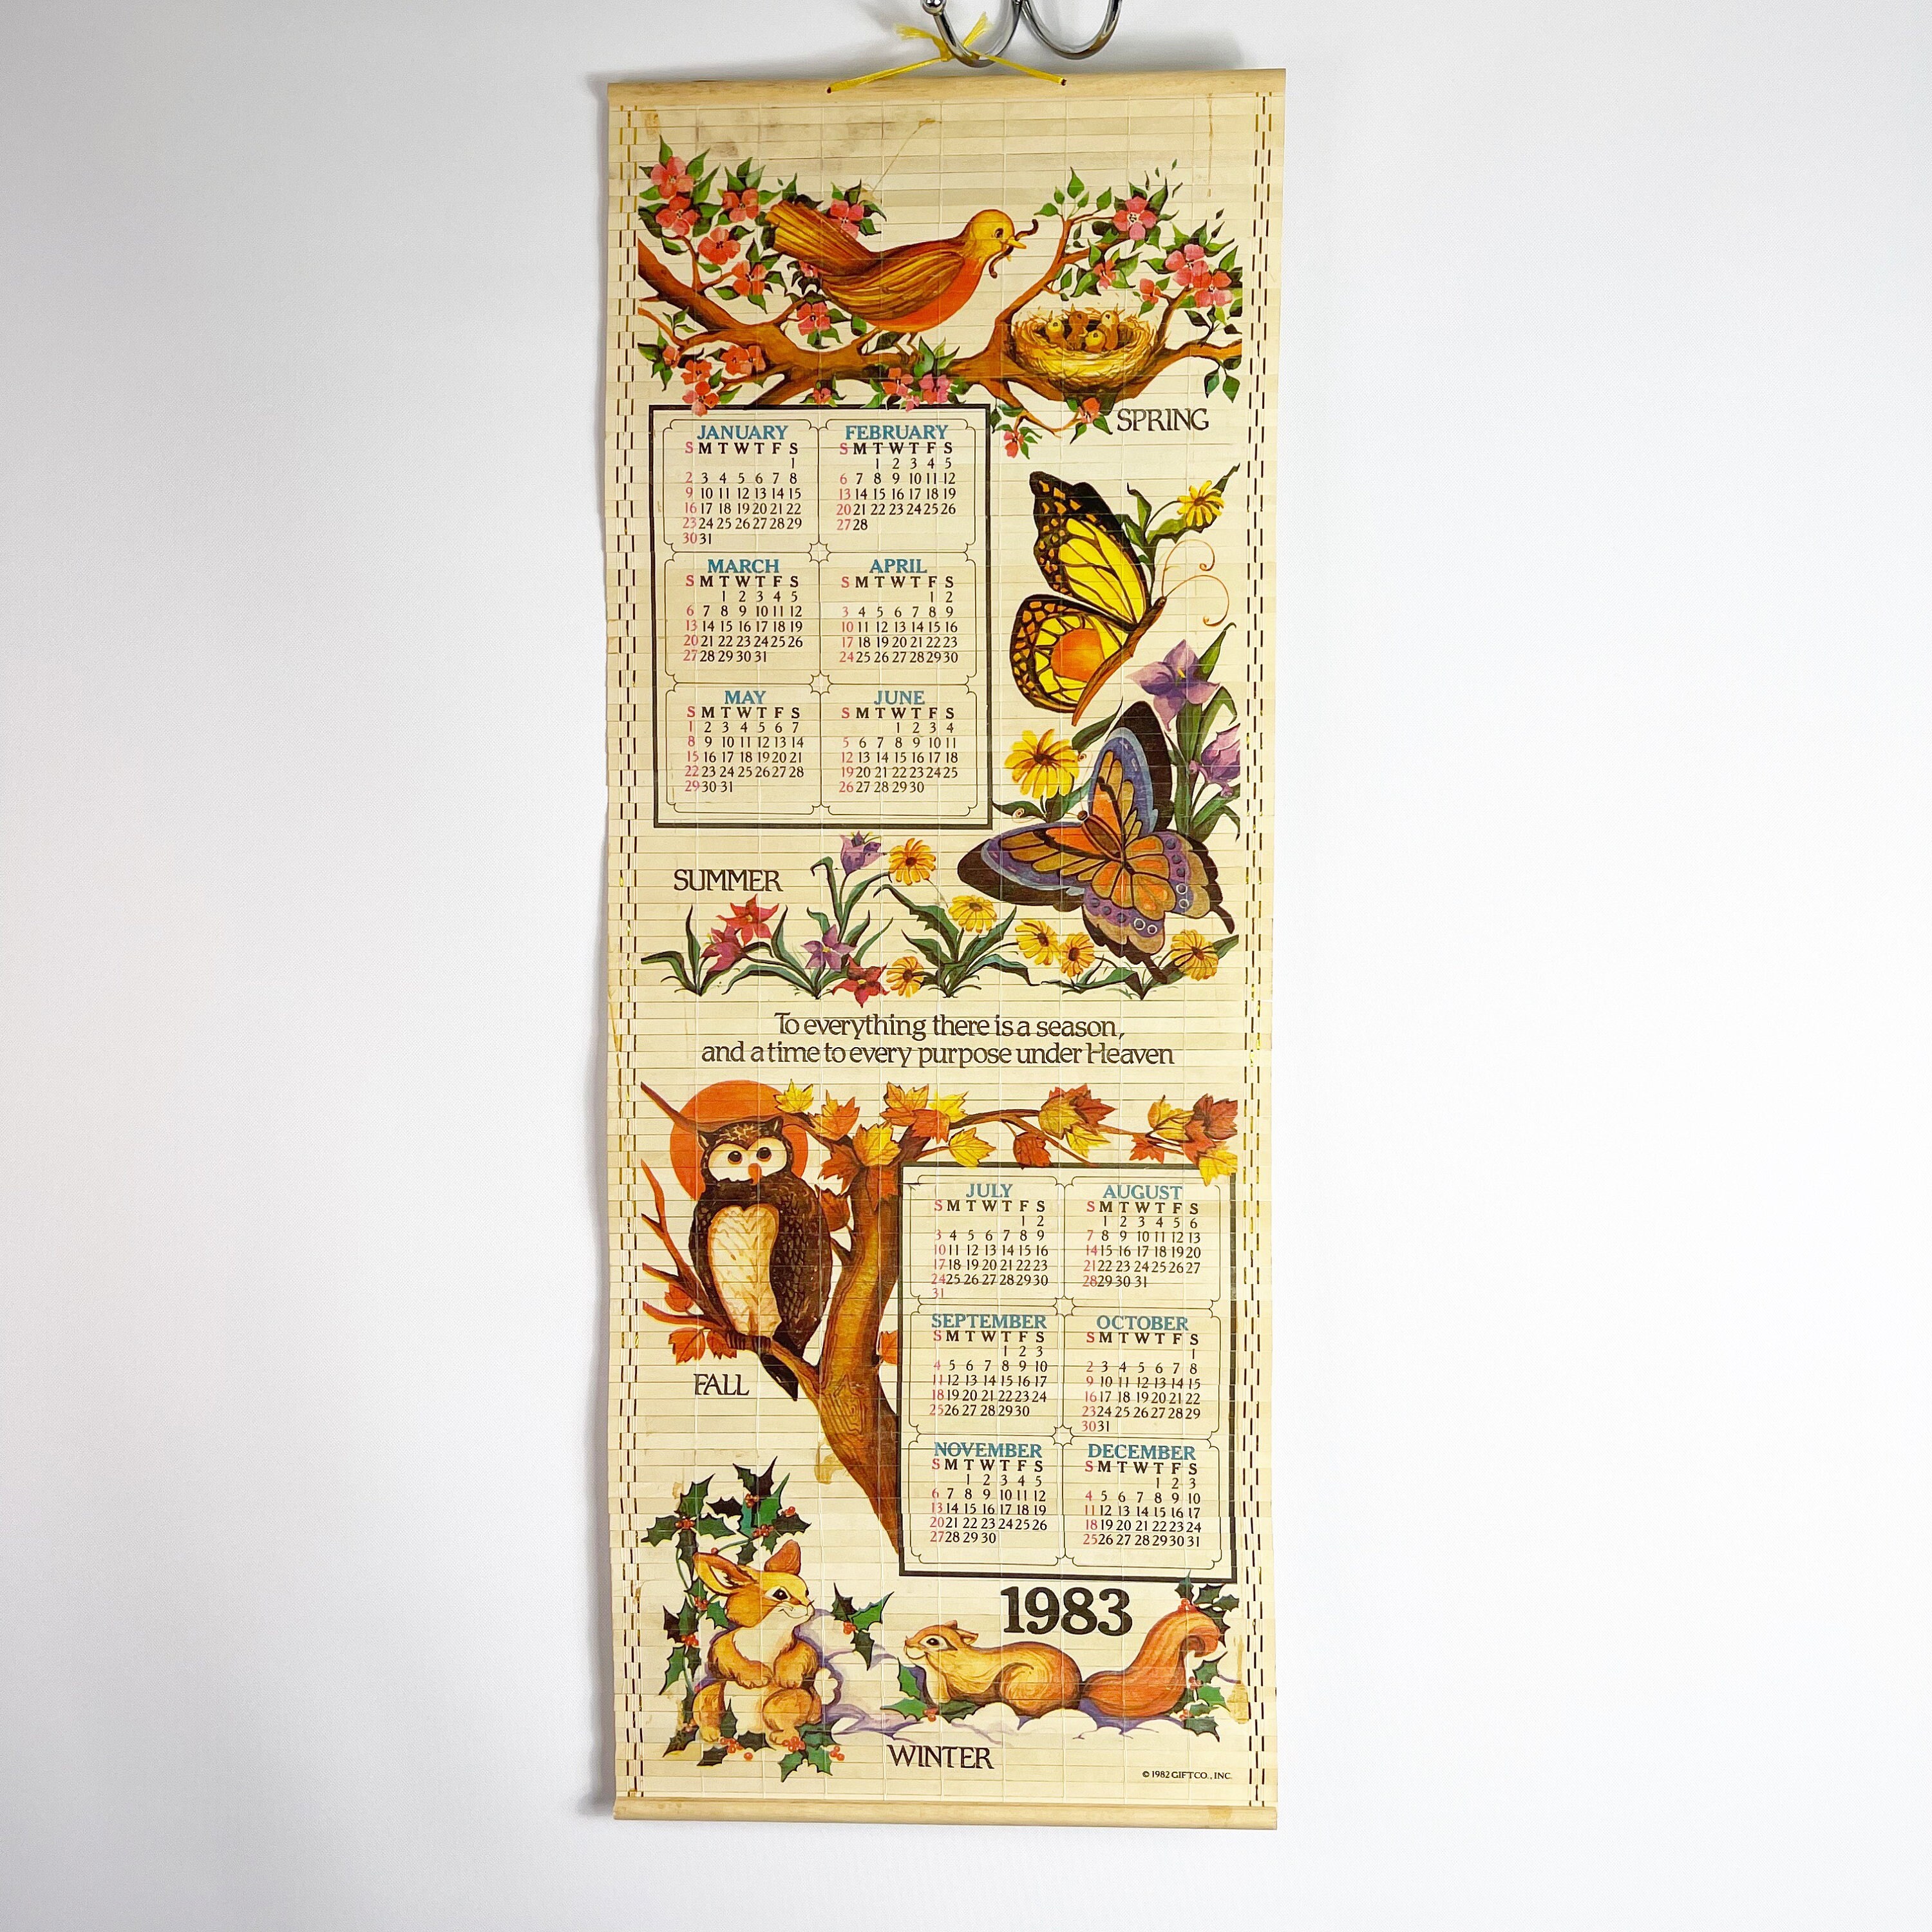 SPRING
JANUARY
S M T W T F S
1
2 3 4 5 6 7 8
9 10 11 12 13 14 15
16 17 18 19 20 21 22
23 24 25 26 27 28 29
30 31
FEBRUARY
S M T W T F S
1 2 3 4 5
6 7 8 9 10 11 12
13 14 15 16 17 18 19
20 21 22 23 24 25 26
27 28
MARCH
S M T W T F S
1 2 3 4 5
6 7 8 9 10 11 12
13 14 15 16 17 18 19
20 21 22 23 24 25 26
27 28 29 30 31
APRIL
S M T W T F S
1 2
3 4 5 6 7 8 9
10 11 12 13 14 15 16
17 18 19 20 21 22 23
24 25 26 27 28 29 30
MAY
S M T W T F S
1 2 3 4 5 6 7
8 9 10 11 12 13 14
15 16 17 18 19 20 21
22 23 24 25 26 27 28
29 30 31
JUNE
S M T W T F S
1 2 3 4
5 6 7 8 9 10 11
12 13 14 15 16 17 18
19 20 21 22 23 24 25
26 27 28 29 30
SUMMER
To everything there is a season,
and a time to every purpose under Heaven
JULY
S M T W T F S
1 2
3 4 5 6 7 8 9
10 11 12 13 14 15 16
17 18 19 20 21 22 23
24 25 26 27 28 29 30
31
AUGUST
S M T W T F S
1 2 3 4 5 6
7 8 9 10 11 12 13
14 15 16 17 18 19 20
21 22 23 24 25 26 27
28 29 30 31
SEPTEMBER
S M T W T F S
1 2 3
4 5 6 7 8 9 10
11 12 13 14 15 16 17
18 19 20 21 22 23 24
25 26 27 28 29 30
OCTOBER
S M T W T F S
1
2 3 4 5 6 7 8
9 10 11 12 13 14 15
16 17 18 19 20 21 22
23 24 25 26 27 28 29
30 31
FALL
NOVEMBER
S M T W T F S
1 2 3 4 5
6 7 8 9 10 11 12
13 14 15 16 17 18 19
20 21 22 23 24 25 26
27 28 29 30
DECEMBER
S M T W T F S
1 2 3
4 5 6 7 8 9 10
11 12 13 14 15 16 17
18 19 20 21 22 23 24
25 26 27 28 29 30 31
1983
WINTER
© 1982 GIFTCO., INC.